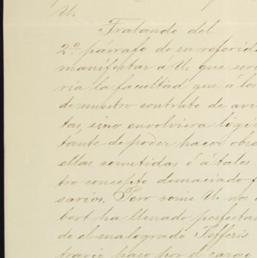 U.
Tratando del
2.º párrafo de su referida
manifestar a U. que seme
ria la facultad que á los
de nuestro contrato de
tas, sino envolviera
tante de poder hacer obra
ellas sometidas á tales
tro concepto demaciado
sarios. Pero como U. no
bert ha llenado perfectam
de el malogrado Jefferis